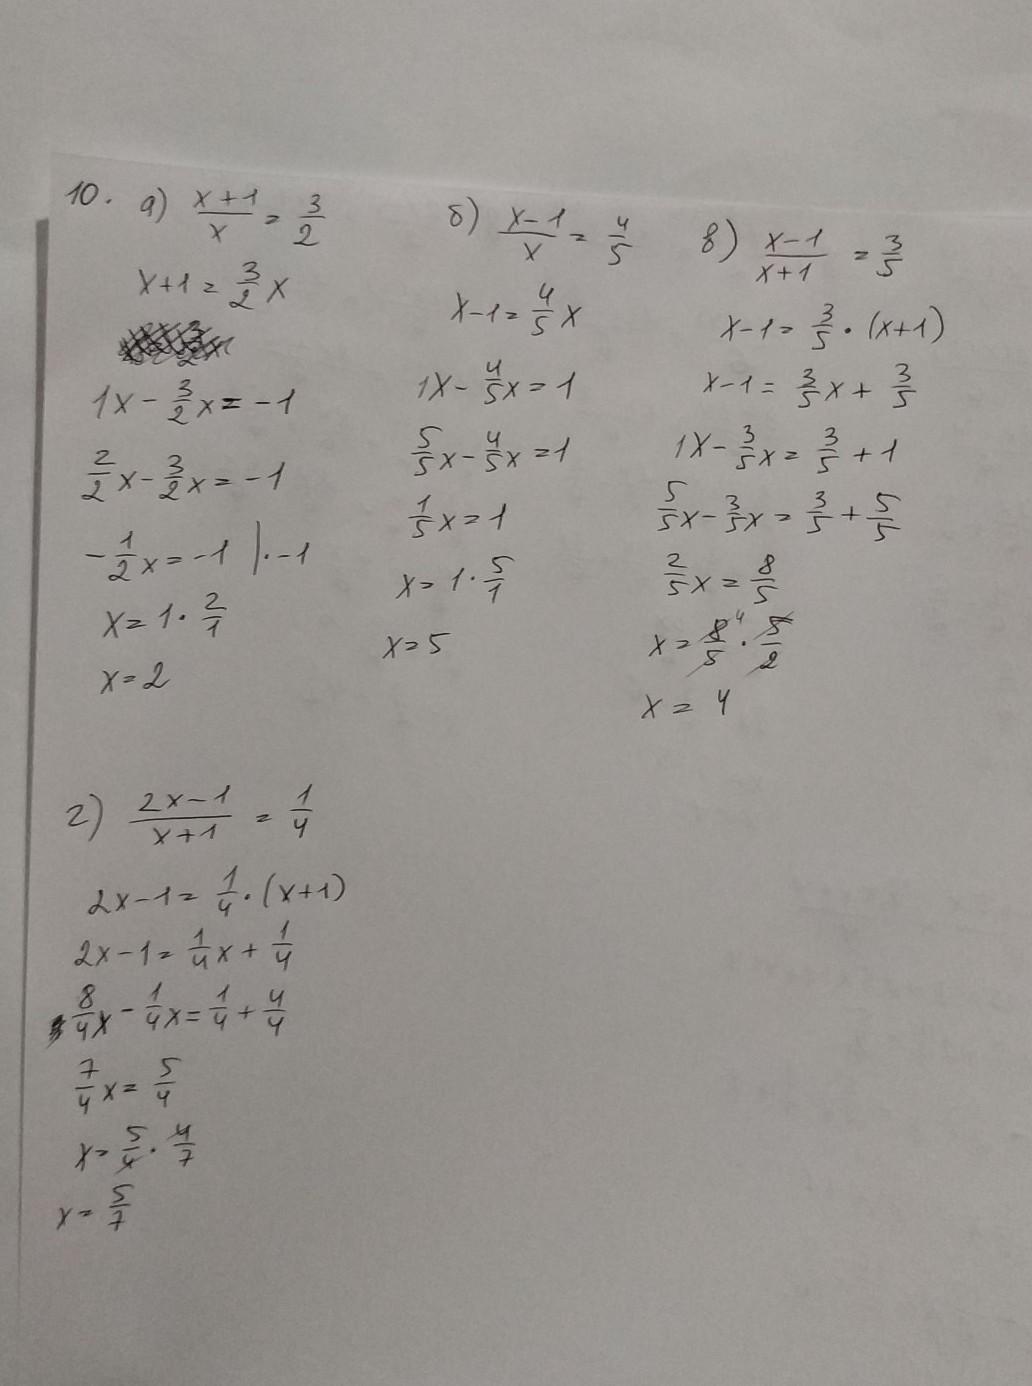 10. а) (x+1)/x = 3/2
x+1 = 3/2 x
1x - 3/2 x = -1
2/2 x - 3/2 x = -1
-1/2 x = -1 |· -1
x = 1 · 2/1
x = 2
б) (x-1)/x = 4/5
x-1 = 4/5 x
1x - 4/5 x = 1
5/5 x - 4/5 x = 1
1/5 x = 1
x = 1 · 5/1
x = 5
в) (x-1)/(x+1) = 3/5
x-1 = 3/5 · (x+1)
x-1 = 3/5 x + 3/5
1x - 3/5 x = 3/5 + 1
5/5 x - 3/5 x = 3/5 + 5/5
2/5 x = 8/5
x = 8⁴/5 · 5/2
x = 4
г) (2x-1)/(x+1) = 1/4
2x-1 = 1/4 · (x+1)
2x-1 = 1/4 x + 1/4
8/4 x - 1/4 x = 1/4 + 4/4
7/4 x = 5/4
x = 5/4 · 4/7
x = 5/7